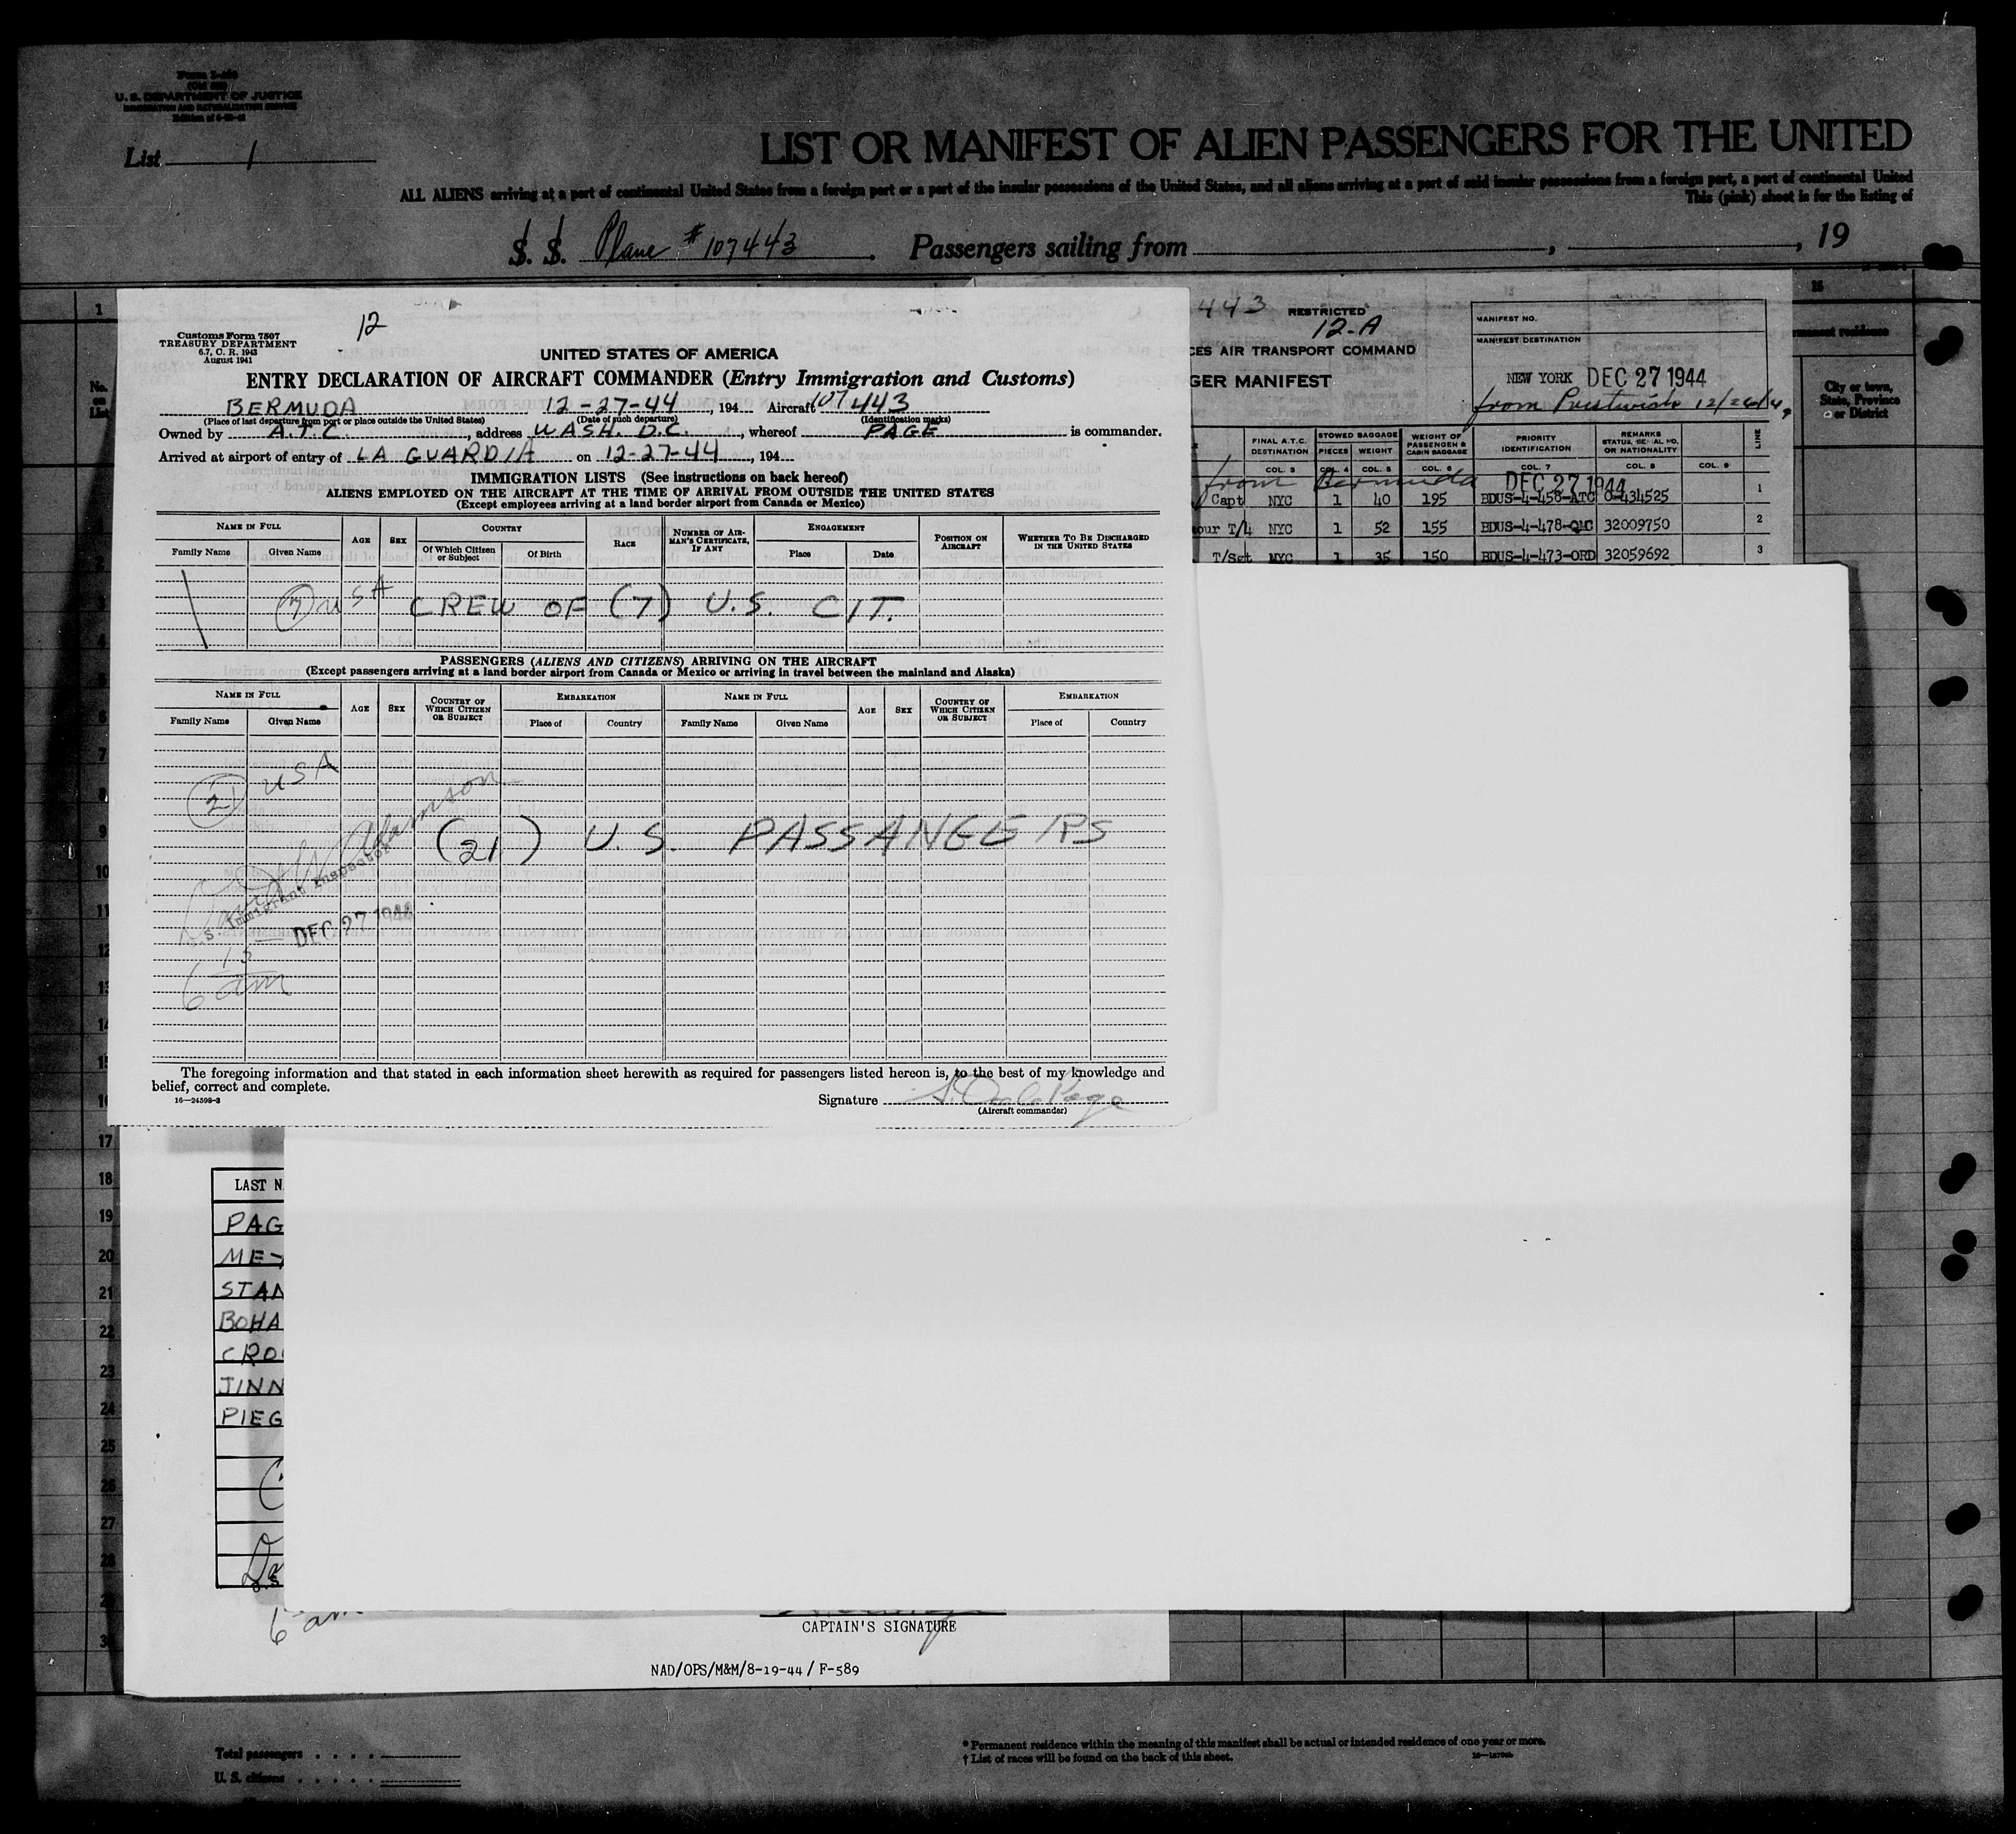 Form I-466
U. S. DEPARTMENT OF JUSTICE
IMMIGRATION AND NATURALIZATION SERVICE
List 1
LIST OR MANIFEST OF ALIEN PASSENGERS FOR THE UNITED
ALL ALIENS arriving at a port of continental United States from a foreign port or a port of the insular possessions of the United States, and all aliens arriving at a port of said insular possessions from a foreign port, a port of continental United
This (pink) sheet is for the listing of
S. S. Plane #107443 . Passengers sailing from , , 19
Customs Form 7507
TREASURY DEPARTMENT
6.7, C. R. 1943
August 1941
12
UNITED STATES OF AMERICA
ENTRY DECLARATION OF AIRCRAFT COMMANDER (Entry Immigration and Customs)
BERMUDA 12-27-44, 194 Aircraft 107443
(Place of last departure from port or place outside the United States) (Date of such departure) (Identification marks)
Owned by A.T.C., address WASH. D.C., whereof PAGE is commander.
Arrived at airport of entry of LA GUARDIA on 12-27-44, 194
IMMIGRATION LISTS (See instructions on back hereof)
ALIENS EMPLOYED ON THE AIRCRAFT AT THE TIME OF ARRIVAL FROM OUTSIDE THE UNITED STATES
(Except employees arriving at a land border airport from Canada or Mexico)
NAME IN FULL AGE SEX COUNTRY RACE NUMBER OF AIRMAN'S CERTIFICATE, IF ANY ENGAGEMENT POSITION ON AIRCRAFT WHETHER TO BE DISCHARGED IN THE UNITED STATES
Family Name Given Name Of Which Citizen or Subject Of Birth Place Date
7 USA CREW OF (7) U.S. CIT.
PASSENGERS (ALIENS AND CITIZENS) ARRIVING ON THE AIRCRAFT
(Except passengers arriving at a land border airport from Canada or Mexico or arriving in travel between the mainland and Alaska)
NAME IN FULL AGE SEX COUNTRY OF WHICH CITIZEN OR SUBJECT EMBARKATION NAME IN FULL AGE SEX COUNTRY OF WHICH CITIZEN OR SUBJECT EMBARKATION
Family Name Given Name Place of Country Family Name Given Name Place of Country
21 USA
(21) U.S. PASSANGERS
Adamson
U.S. Immigrant Inspector
DEC 27 1944
6 15 am
The foregoing information and that stated in each information sheet herewith as required for passengers listed hereon is, to the best of my knowledge and
belief, correct and complete.
16—24598-3
Signature Page
(Aircraft commander)
443 RESTRICTED
12-A
CES AIR TRANSPORT COMMAND
GER MANIFEST
MANIFEST NO.
MANIFEST DESTINATION
NEW YORK DEC 27 1944
from Prestwick 12/26/44
FINAL A.T.C. DESTINATION STOWED BAGGAGE PIECES WEIGHT WEIGHT OF PASSENGER & CABIN BAGGAGE PRIORITY IDENTIFICATION REMARKS STATUS, SERIAL NO. OR NATIONALITY LINE
COL. 3 COL. 4 COL. 5 COL. 6 COL. 7 COL. 8 COL. 9
from Bermuda DEC 27 1944
Capt NYC 1 40 195 BDUS-4-458-ATC O-434525 1
our T/4 NYC 1 52 155 BDUS-4-478-QMC 32009750 2
T/Sgt NYC 1 35 150 BDUS-4-473-ORD 32059692 3
15
rmanent residence
City or town, State, Province or District
No. on List
1
LAST N
PAG
MEY
STAN
BOHA
CRO
JINN
PIEG
6 am
CAPTAIN'S SIGNATURE
NAD/OPS/M&M/8-19-44 / F-589
17
18
19
20
21
22
23
24
25
26
27
28
Total passengers
U. S. citizens
* Permanent residence within the meaning of this manifest shall be actual or intended residence of one year or more.
† List of races will be found on the back of this sheet.